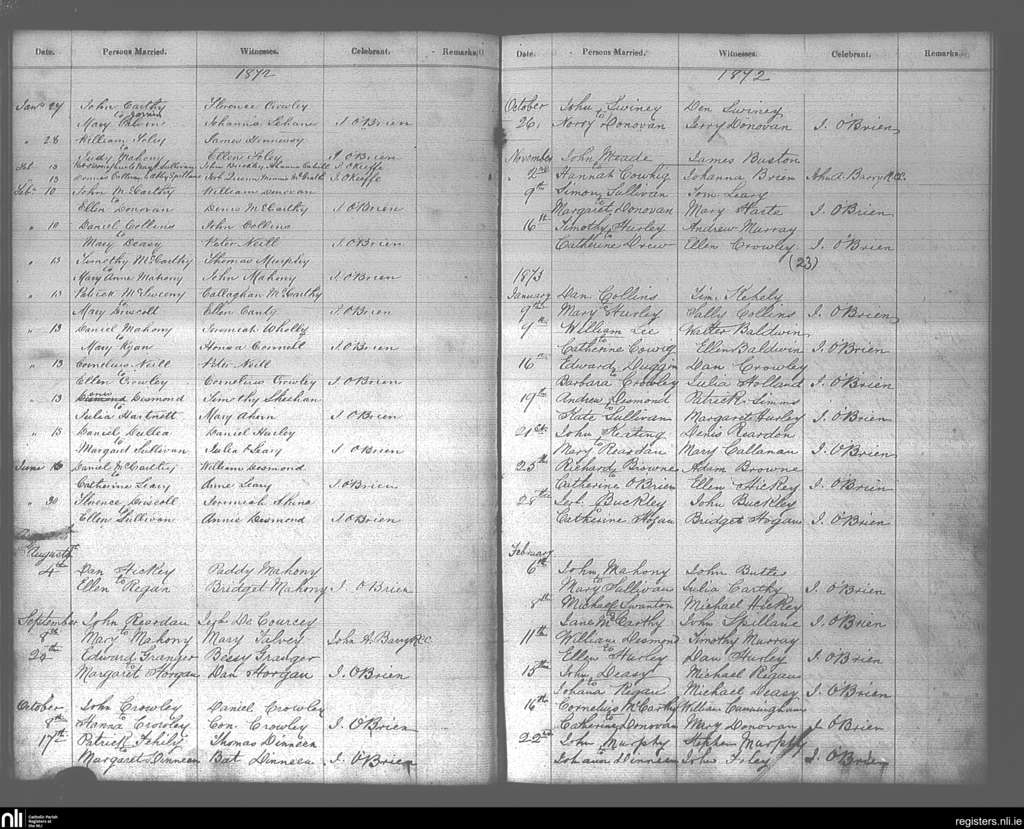 Date. Persons Married. Witnesses. Celebrant. Remarks.
1872
Jany 27 John Carthy Florence Crowley
to
Mary Johanna Sehane J O'Brien
" 28 William Foley James Dennessy
Judy Mahony Ellen Foley J O'Brien
Feb. 13 J. O'Keeffe
13 J. O'Keeffe
Feby 10 John McCarthy William Donovan
to
Ellen Donovan Denis McCarthy J O'Brien
" 10 Daniel Collins John Collins
to
Mary Deasy Peter Neill J O'Brien
" 13 Timothy McCarthy Thomas Murphy
to
Mary Anne Mahony John Mahony J. O'Brien
" 13 Patrick McSweeny Callaghan McCarthy
to
Mary Driscoll Ellen Canty J. O'Brien
" 13 Daniel Mahony Jeremiah Wholly
to
Mary Ryan Honora Connell J. O'Brien
" 13 Cornelius Neill Peter Neill
to
Ellen Crowley Cornelius Crowley J. O'Brien
" 13 Desmond Timothy Sheehan
to
Julia Hartnett Mary Ahern J O'Brien
" 13 Daniel Dullea Daniel Hurley
to
Margaret Sullivan Julia Leary J O'Brien
June 16 Daniel McCarthy William Desmond
to
Catherine Leary Anne Leary J O'Brien
" 30 Florence Driscoll Jeremiah
to
Ellen Sullivan Annie Desmond J O'Brien
August
4th Dan Hickey Paddy Mahony
to
Ellen Regan Bridget Mahony J. O'Brien
September John Reardan De Courcey
8th Mary to Mahony Mary Falvey John A. Barry R.C.C.
24th Edward Granger Bessy Granger
Margaret Horgan Dan Horgan J. O'Brien
October John Crowley Daniel Crowley
8th Hanna to Crowley Con. Crowley J. O'Brien
17th Patrick Fehily Thomas Dinneen
Margaret Dinneen Bat Dinneen J. O'Brien
Date. Persons Married. Witnesses. Celebrant. Remarks.
1872
October John Swiney Den Swiney
26, Norry to Donovan Jerry Donovan J. O'Brien
November John Meade James Buston
2nd Hannah Cowhig Johanna Brien John A Barry R.C.C.
9th Simon Sullivan Tom Leary
Margaret Donovan Mary Harte J. O'Brien
16th Timothy Hurley Andrew Murray
Catherine to Drew Ellen Crowley J. O'Brien
(23)
1873
January Dan Collins Tim. Kehely
9th Mary to Hurley Sally Collins J. O'Brien
9th William Lee Walter Baldwin
Catherine to Cowig Ellen Baldwin J. O'Brien
16th Edward Duggin Dan Crowley
Barbara Crowley Julia Holland J. O'Brien
19th Andrew Desmond Patrick Simms
Kate to Sullivan Margaret Hurley J. O'Brien
21st John Keating Denis Reardon
Mary to Reardan Mary Callanan J. O'Brien
25th Richard Browne Adam Browne
Catherine O'Brien Ellen Hickey J. O'Brien
28th Buckley John Buckley
Catherine Hogan Bridget Hogan J. O'Brien
February
6th John Mahony John Butler
Mary to Sullivan Julia Carthy J. O'Brien
8th Michael Swanton Michael Hickey
Jane McCarthy John Spillane J. O'Brien
11th William Desmond Timothy Murray
Ellen to Hurley Dan Hurley J O'Brien
15th John Deasy Michael Regan
Johana to Regan Michael Deasy J. O'Brien
16th Cornelius McCarthy William Cunningham
Catherine Donovan Mary Donovan J O'Brien
22nd John Murphy Stephen Murphy
Johana Dinneen John Foley J. O'Brien
nli Catholic Parish Registers at the NLI
registers.nli.ie